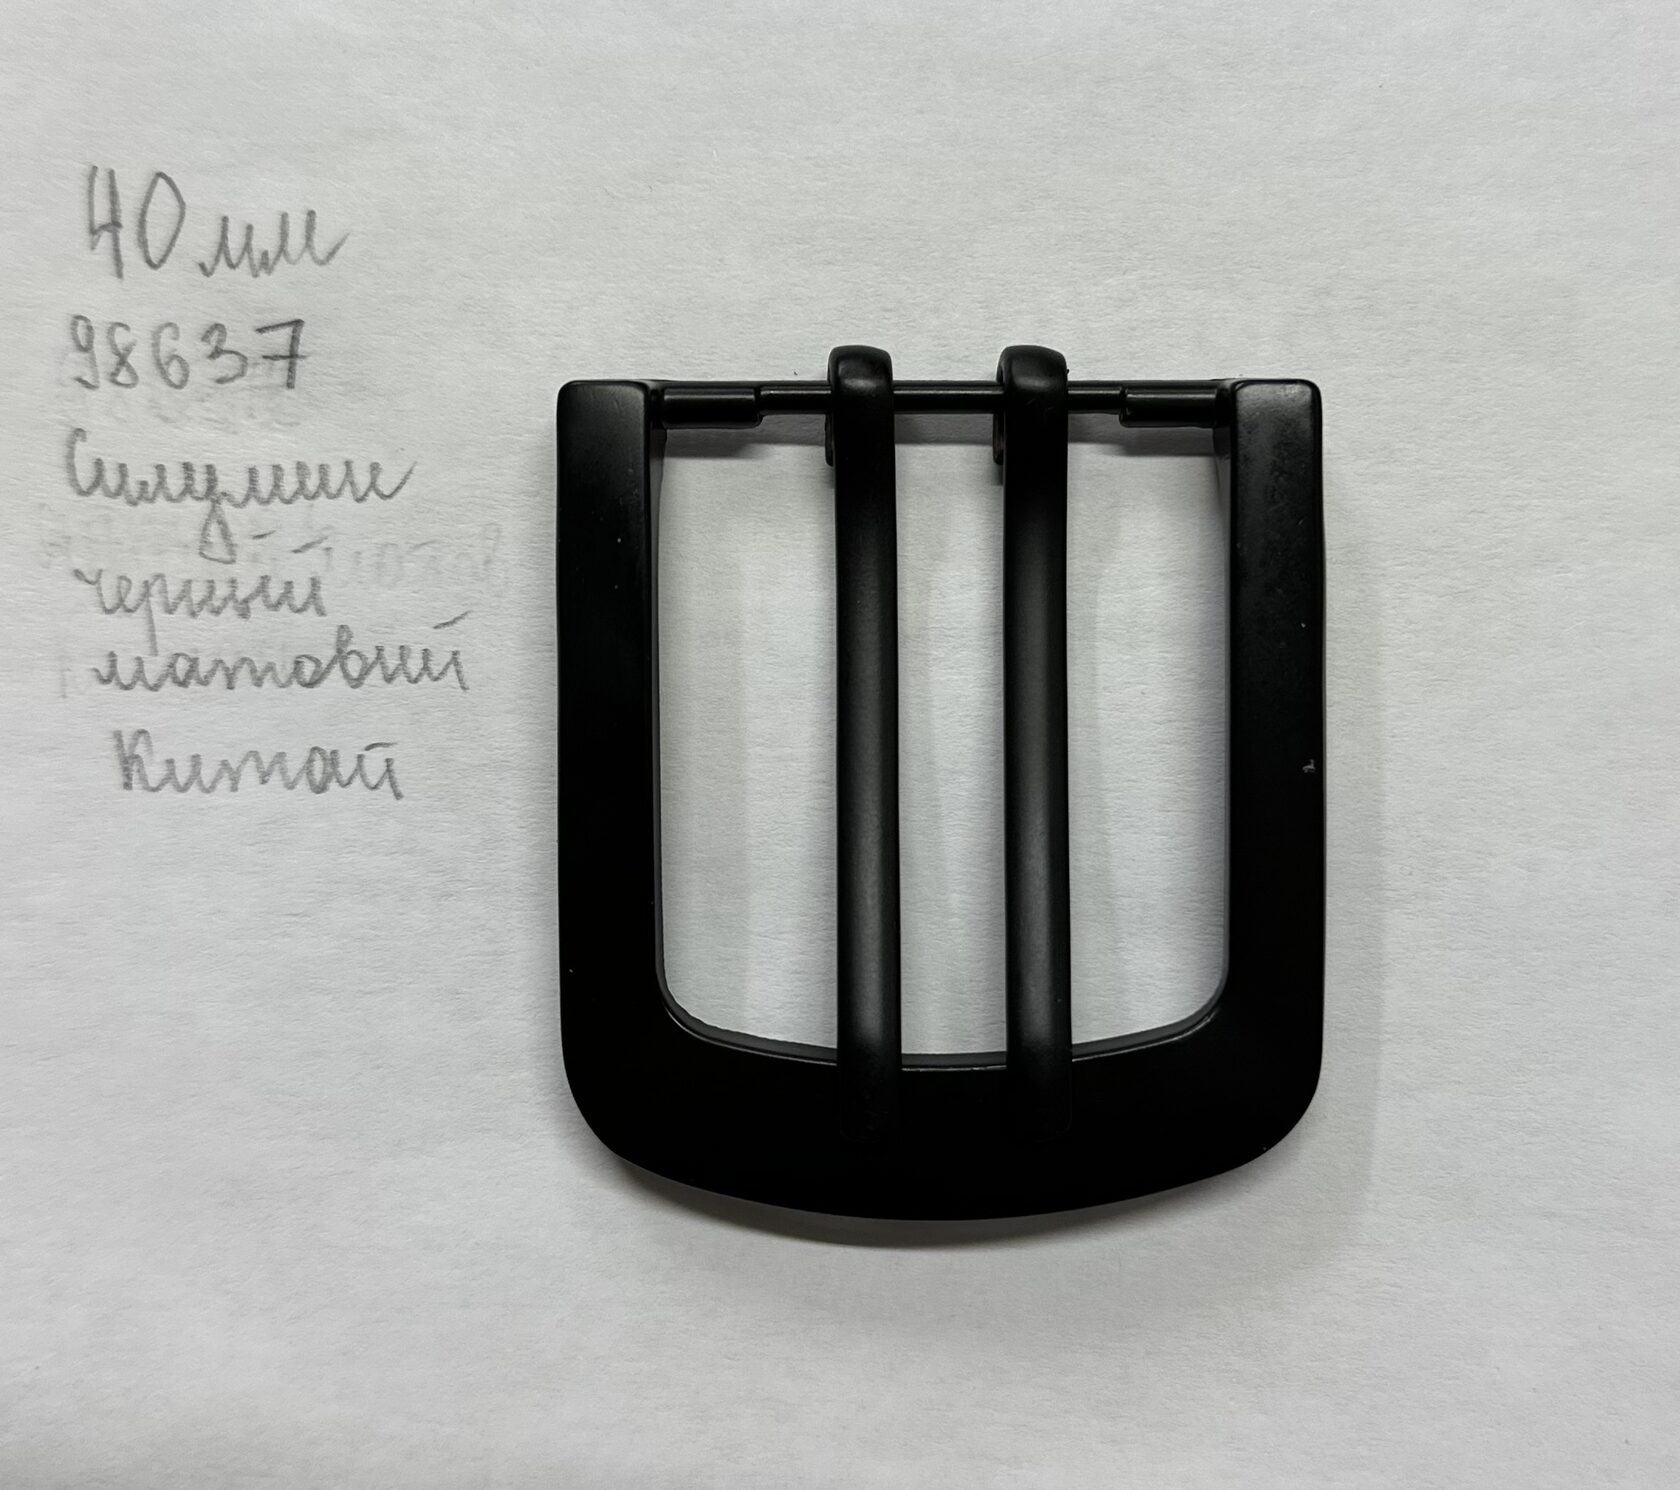 40 мм
98637
Силумин
черный
матовый
Китай